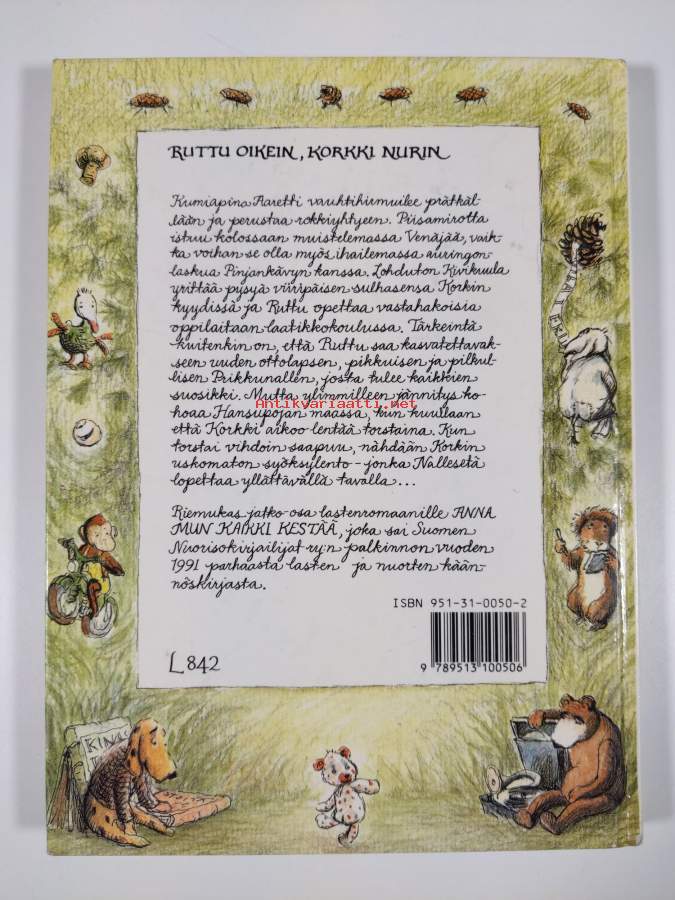 RUTTU OIKEIN, KORKKI NURIN
Kumiapina Faretti vauhtihirmuilee prätkäl-
lään ja perustaa rokkiyhtyeen. Piisamirotta
istuu kolossaan muistelemassa Venäjää, vaik-
ka voihan se olla myös ihailemassa auringon-
laskua Pinjankävyn kanssa. Lohduton Kivikuula
yrittää pysyä viiripäisen sulhasensa Korkin
kyydissä ja Ruttu opettaa vastahakoisia
oppilaitaan laatikkokoulussa. Tärkeintä
kuitenkin on, että Ruttu saa kasvatettavak-
seen uuden ottolapsen, pikkuisen ja pilkul-
lisen Prikkunallen, josta tulee kaikkien
suosikki. Mutta ylimmilleen jännitys ko-
hoaa Hansupojan maassa, kun kuullaan
että Korkki aikoo lentää torstaina. Kun
torstai vihdoin saapuu, nähdään Korkin
uskomaton syöksylento – jonka Nallesetä
lopettaa yllättävällä tavalla...
Riemukas jatko-osa lastenromaanille ANNA
MUN KAIKKI KESTÄÄ, joka sai Suomen
Nuorisokirjailijat ry:n palkinnon vuoden
1991 parhaasta lasten- ja nuorten kään-
nöskirjasta.
ISBN 951-31-0050-2
9 789513 100506
L 842
Antikvariaatti.net